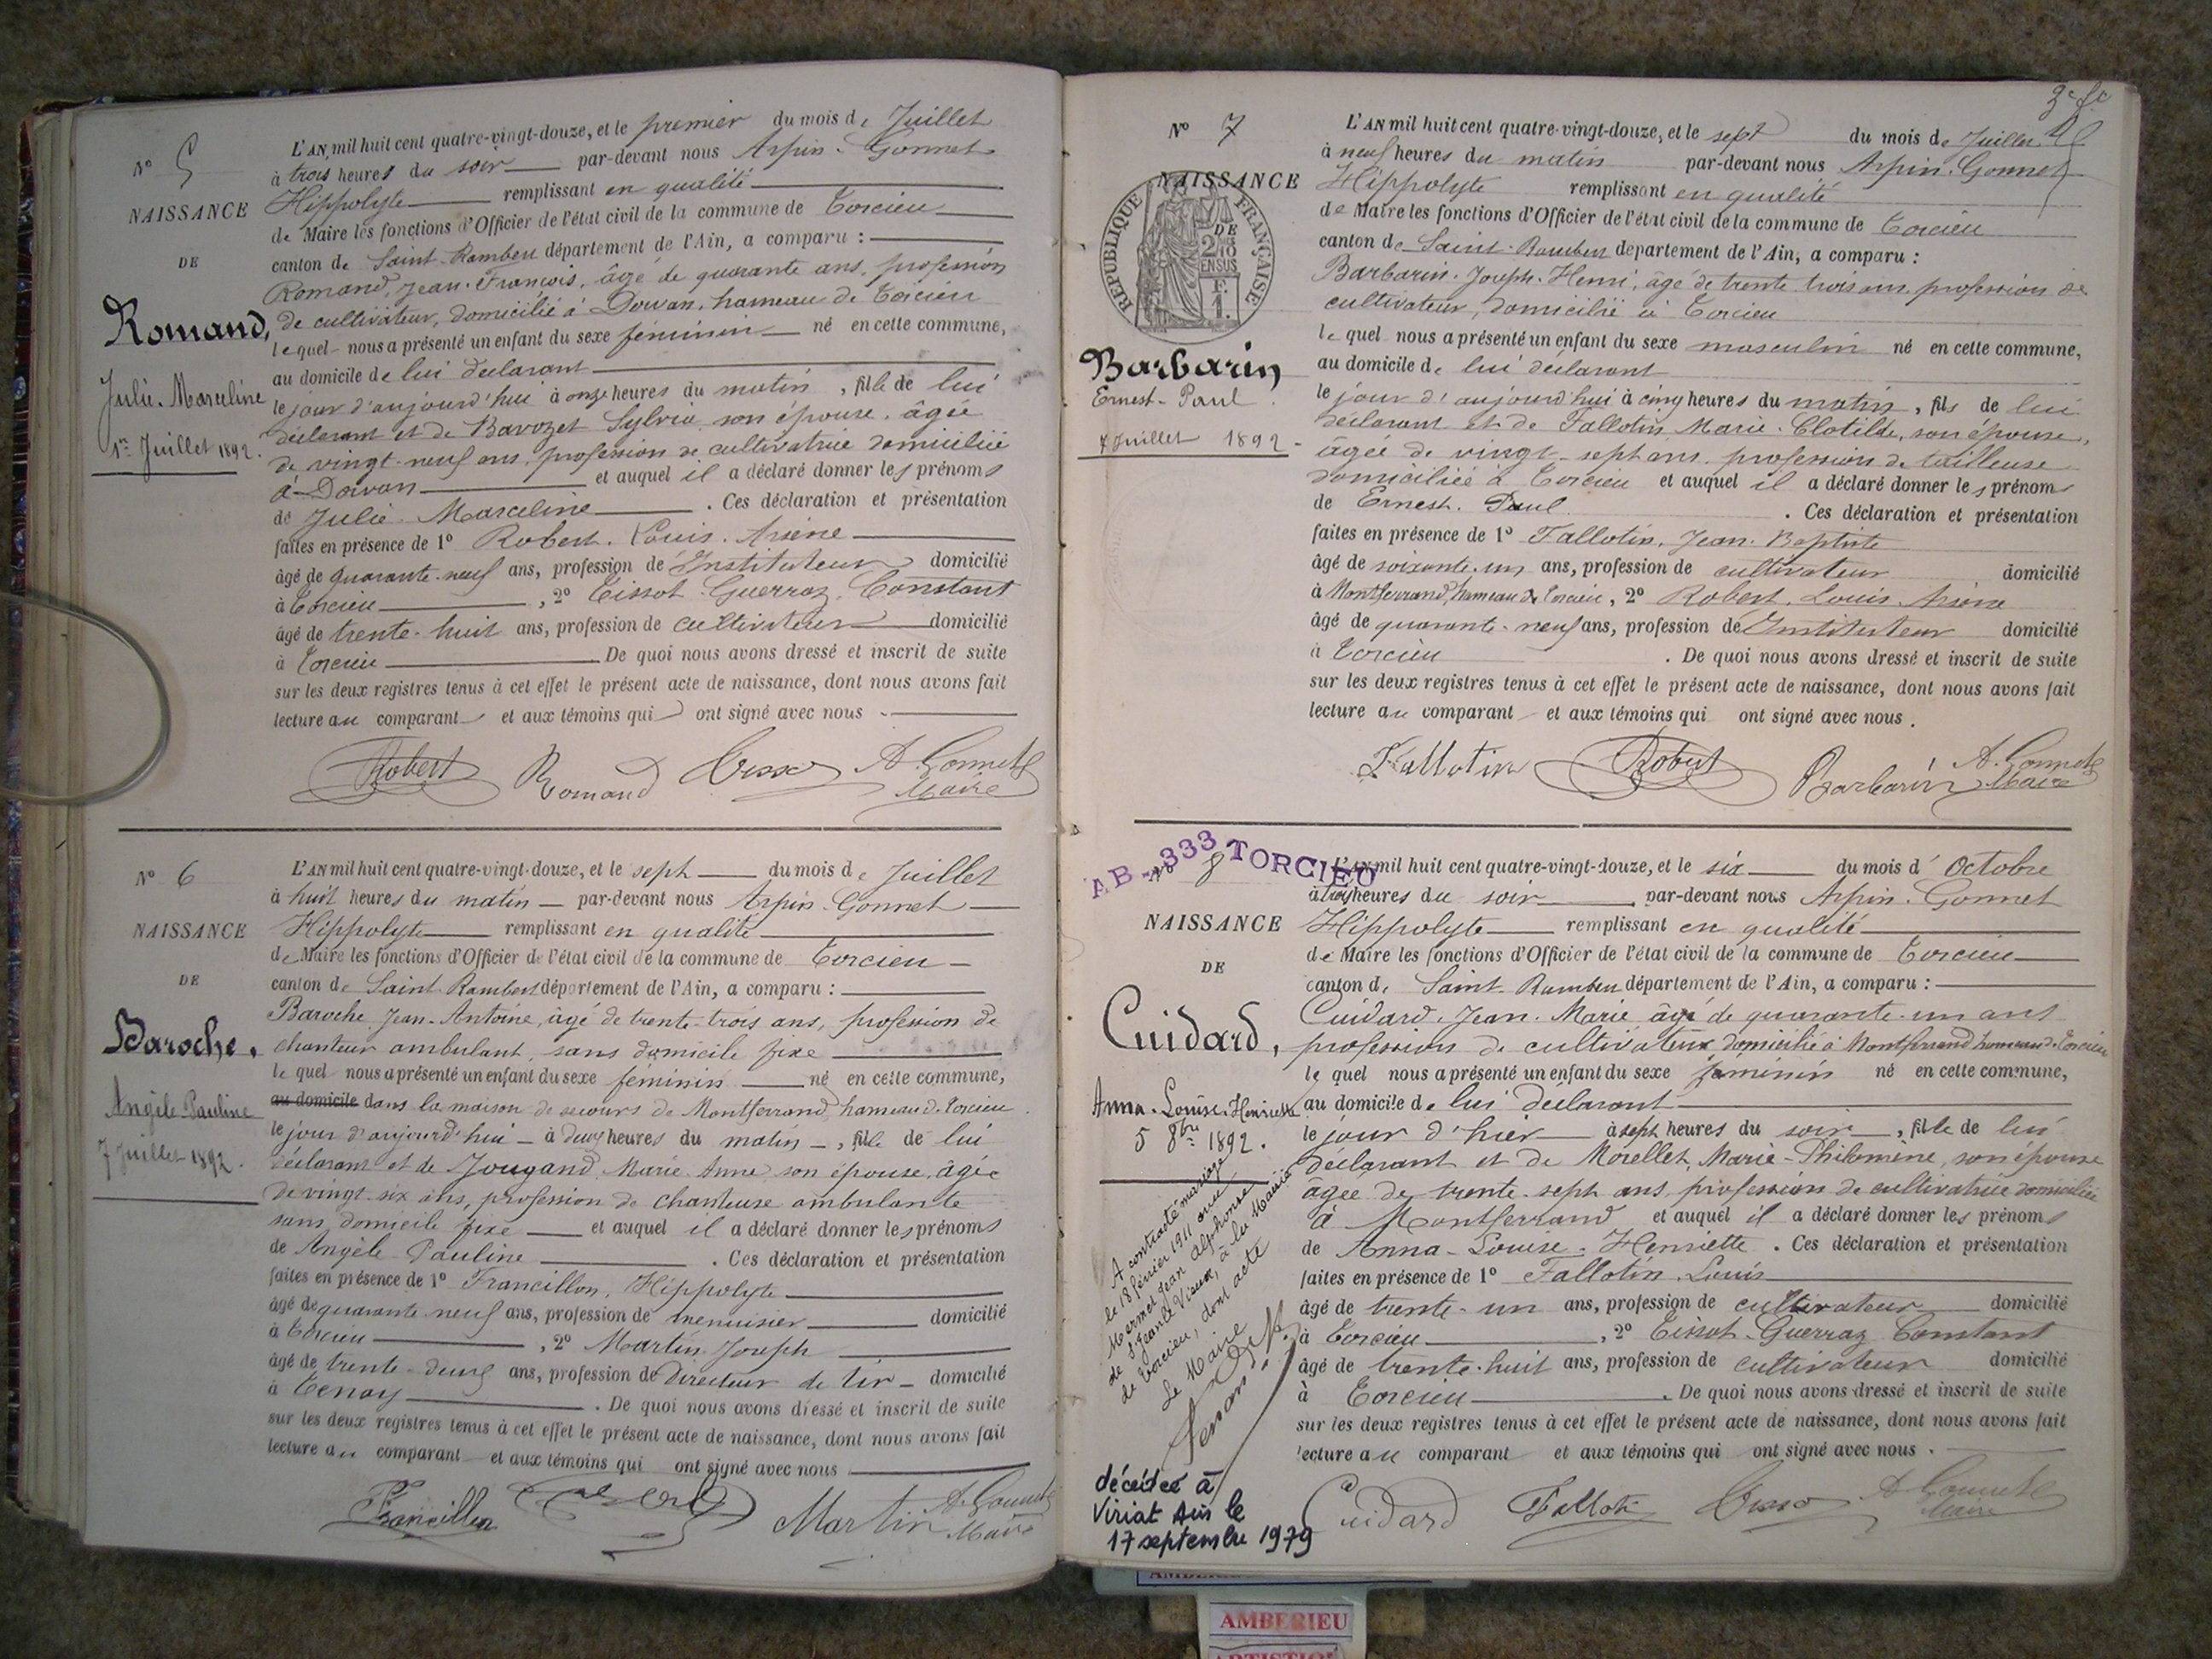 N° 5
NAISSANCE
DE
Romand,
Julie-Marceline
1er Juillet 1892.
L'AN mil huit cent quatre-vingt-douze, et le premier du mois de Juillet
à trois heures du soir par-devant nous Arpin-Gonnet
Hippolyte remplissant en qualité
de Maire les fonctions d'Officier de l'état civil de la commune de Torcieu
canton de Saint-Rambert département de l'Ain, a comparu :
Romand, Jean-François, âgé de quarante ans, profession
de cultivateur, domicilié à Dorvan, hameau de Torcieu
lequel nous a présenté un enfant du sexe féminin né en cette commune,
au domicile de lui déclarant
le jour d'aujourd'hui à onze heures du matin, fille de lui
déclarant et de Bavozet Sylvie son épouse, âgée
de vingt-neuf ans, profession de cultivatrice domiciliée
à Dorvan et auquel il a déclaré donner les prénoms
de Julie-Marceline. Ces déclaration et présentation
faites en présence de 1° Robert, Louis, Arsène
âgé de quarante-neuf ans, profession de Instituteur domicilié
à Torcieu, 2° Tissot-Guerraz, Constant
âgé de trente-huit ans, profession de cultivateur domicilié
à Torcieu De quoi nous avons dressé et inscrit de suite
sur les deux registres tenus à cet effet le présent acte de naissance, dont nous avons fait
lecture au comparant et aux témoins qui ont signé avec nous
Robert Romand Tissot A. Gonnet
Maire
N° 6
NAISSANCE
DE
Baroche.
Angèle-Pauline
7 Juillet 1892.
L'AN mil huit cent quatre-vingt-douze, et le sept du mois de Juillet
à huit heures du matin par-devant nous Arpin-Gonnet
Hippolyte remplissant en qualité
de Maire les fonctions d'Officier de l'état civil de la commune de Torcieu
canton de Saint-Rambert département de l'Ain, a comparu :
Baroche, Jean-Antoine, âgé de trente-trois ans, profession de
chanteur ambulant, sans domicile fixe
le quel nous a présenté un enfant du sexe féminin né en cette commune,
au domicile dans la maison de secours de Montferrand, hameau de Torcieu
le jour d'aujourd'hui à deux heures du matin, fille de lui
déclarant et de Jougand, Marie-Anne, son épouse, âgée
de vingt-six ans, profession de chanteuse ambulante
sans domicile fixe et auquel il a déclaré donner les prénoms
de Angèle-Pauline. Ces déclaration et présentation
faites en présence de 1° Francillon, Hippolyte
âgé de quarante neuf ans, profession de menuisier domicilié
à Torcieu, 2° Martin Joseph
âgé de trente-deux ans, profession de Directeur de tir domicilié
à Tenay. De quoi nous avons dressé et inscrit de suite
sur les deux registres tenus à cet effet le présent acte de naissance, dont nous avons fait
lecture au comparant et aux témoins qui ont signé avec nous
Francillon Martin A. Gonnet
Maire
N° 7
NAISSANCE
REPUBLIQUE FRANÇAISE
DE
2/10
EN SUS
F.
1.
Barbarin
Ernest-Paul
7 Juillet 1892
L'AN mil huit cent quatre-vingt-douze, et le sept du mois de Juillet
à neuf heures du matin par-devant nous Arpin-Gonnet
Hippolyte remplissant en qualité
de Maire les fonctions d'Officier de l'état civil de la commune de Torcieu
canton de Saint-Rambert département de l'Ain, a comparu :
Barbarin, Joseph-Henri, âgé de trente-trois ans, profession de
cultivateur, domicilié à Torcieu
le quel nous a présenté un enfant du sexe masculin né en cette commune,
au domicile de lui déclarant
le jour d'aujourd'hui à cinq heures du matin, fils de lui
déclarant et de Fallotin Marie-Clotilde, son épouse,
âgée de vingt-sept ans, profession de tailleuse
domiciliée à Torcieu et auquel il a déclaré donner les prénoms
de Ernest-Paul. Ces déclaration et présentation
faites en présence de 1° Fallotin, Jean-Baptiste
âgé de soixante-un ans, profession de cultivateur domicilié
à Montferrand, hameau de Torcieu, 2° Robert, Louis, Arsène
âgé de quarante-neuf ans, profession de Instituteur domicilié
à Torcieu. De quoi nous avons dressé et inscrit de suite
sur les deux registres tenus à cet effet le présent acte de naissance, dont nous avons fait
lecture au comparant et aux témoins qui ont signé avec nous.
Fallotin Robert Barbarin A. Gonnet
Maire
AB 333 TORCIEU
N° 8
NAISSANCE
DE
Cuidard,
Anna-Louise-Henriette
5 8bre 1892.
A contracté mariage
le 18 février 1911 avec
Mermet Jean Alphonse
de St Jean le Vieux, à la Mairie
de Torcieu, dont acte
Le Maire
décédée à
Viriat Ain le
17 septembre 1979
L'AN mil huit cent quatre-vingt-douze, et le six du mois d'Octobre
à cinq heures du soir par-devant nous Arpin-Gonnet
Hippolyte remplissant en qualité
de Maire les fonctions d'Officier de l'état civil de la commune de Torcieu
canton de Saint-Rambert département de l'Ain, a comparu :
Cuidard, Jean-Marie âgé de quarante-un ans
profession de cultivateur domicilié à Montferrand hameau de Torcieu
le quel nous a présenté un enfant du sexe féminin né en cette commune,
au domicile de lui déclarant
le jour d'hier à sept heures du soir, fille de lui
déclarant et de Morellet, Marie-Philomène, son épouse
âgée de trente-sept ans, profession de cultivatrice domiciliée
à Montferrand et auquel il a déclaré donner les prénoms
de Anna-Louise-Henriette. Ces déclaration et présentation
faites en présence de 1° Fallotin, Louis
âgé de trente-un ans, profession de cultivateur domicilié
à Torcieu, 2° Tissot-Guerraz Constant
âgé de trente-huit ans, profession de cultivateur domicilié
à Torcieu. De quoi nous avons dressé et inscrit de suite
sur les deux registres tenus à cet effet le présent acte de naissance, dont nous avons fait
lecture au comparant et aux témoins qui ont signé avec nous.
Cuidard Fallotin Tissot A. Gonnet
Maire
AMBERIEU